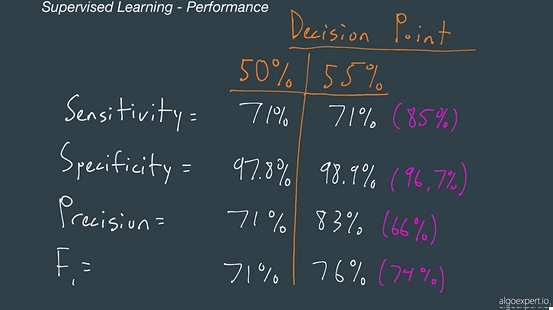 Supervised Learning - Performance
Decision Point
50% 55%
Sensitivity = 71% 71% (85%)
Specificity = 97.8% 98.9% (96.7%)
Precision = 71% 83% (66%)
F1 = 71% 76% (74%)
algoexpert.io